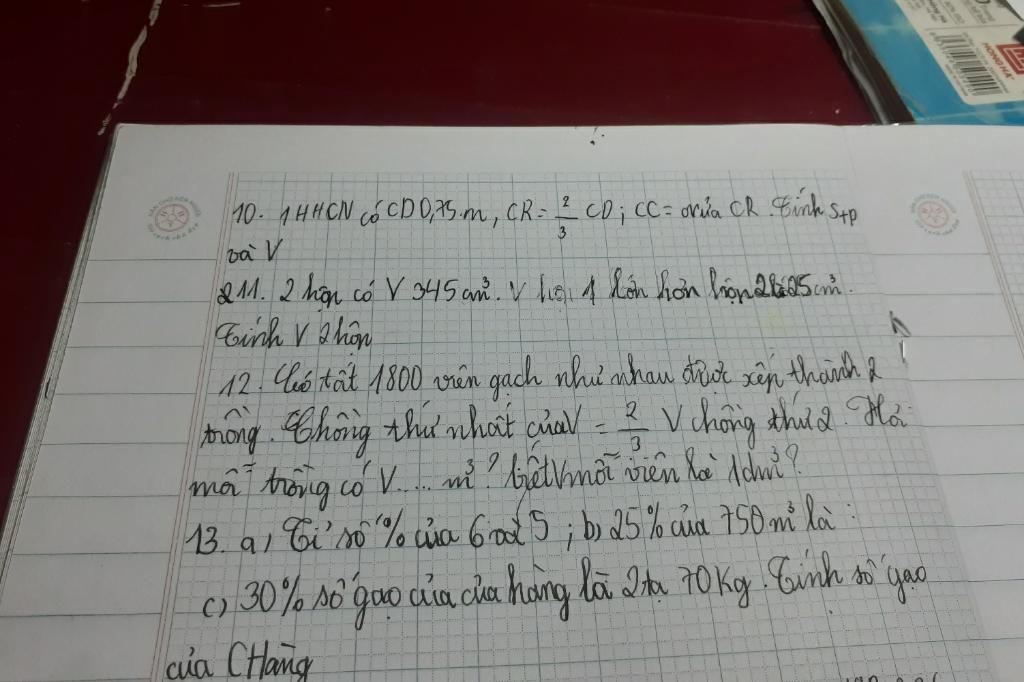 HONG HA
10. 1 HHCN có CD 0,75 m, CR = 2/3 CD; CC = nửa CR. Tính Stp
và V
11. 2 hộn có V 345 cm³. V hộn 1 lớn hơn hộn 2 là 25 cm³.
Tính V 2 hộn
12. Có tất 1800 viên gạch như nhau được xếp thành 2
trồng. Chồng thứ nhất của V = 2/3 V chồng thứ 2. Hỏi
mỗi trồng có V.... m³? biết V mỗi viên là 1dm³?
13. a, Tỉ số % của 6 và 5; b) 25% của 750 m³ là:
c) 30% số gạo của cửa hàng là 2 tạ 70 kg. Tính số gạo
của CHàng